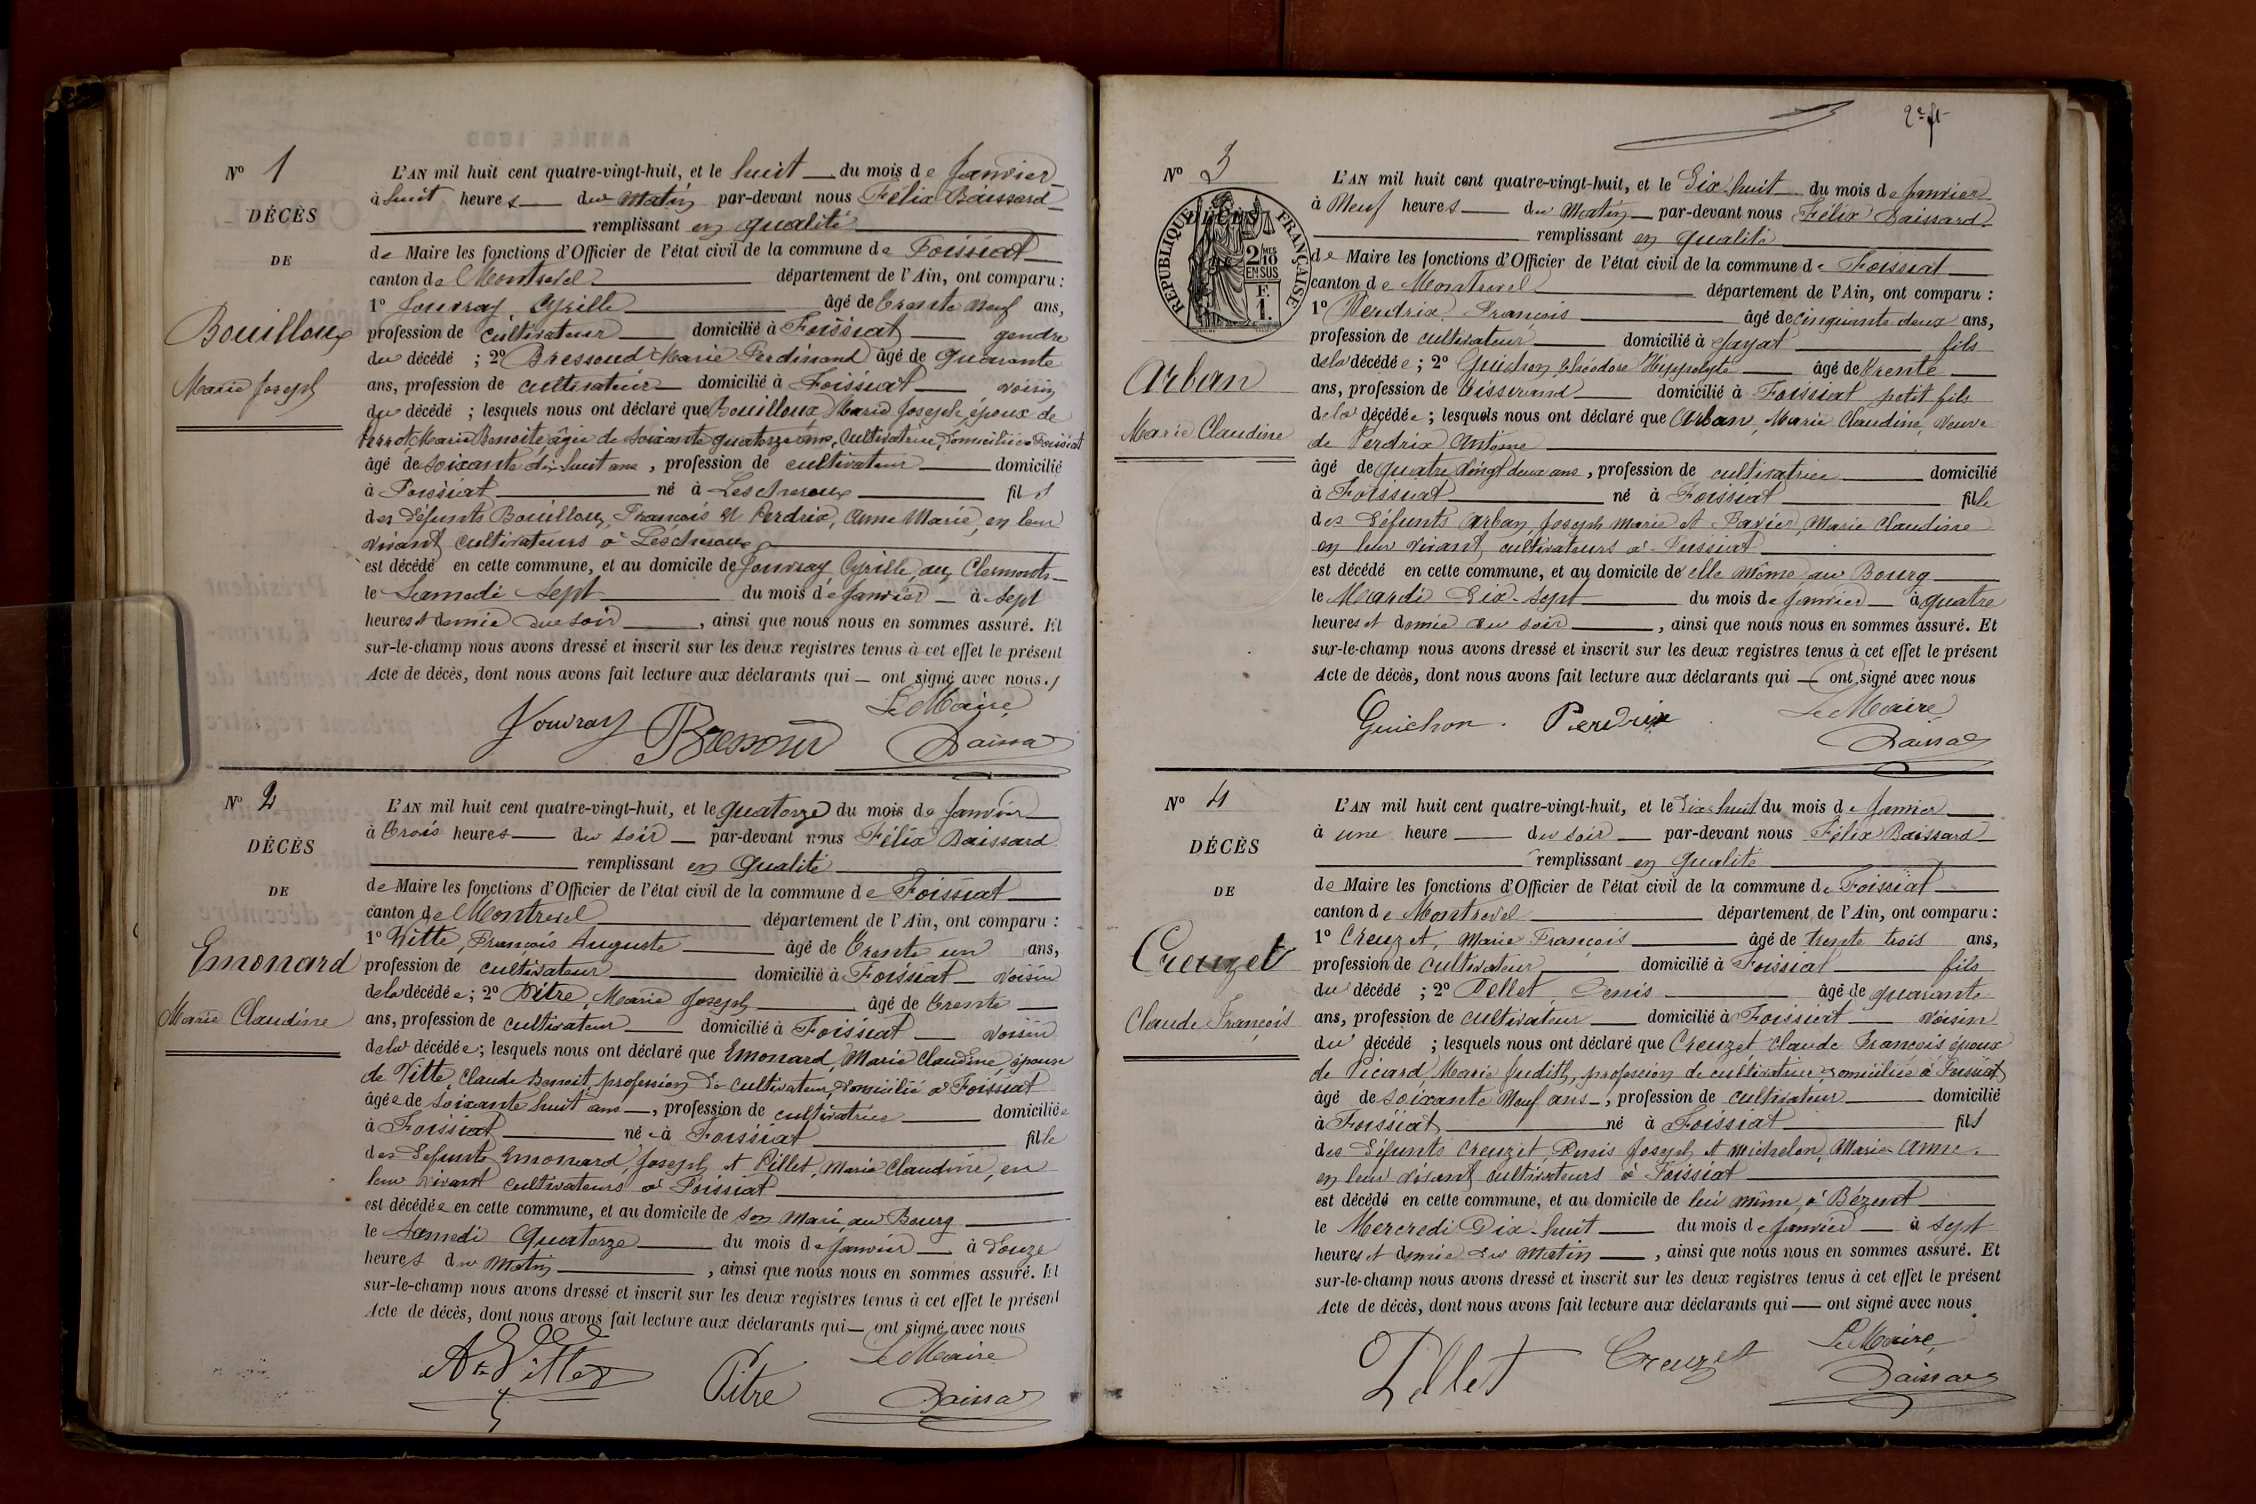 N° 1
DÉCÈS
DE
Bouilloux
Marie Joseph
L'AN mil huit cent quatre-vingt-huit, et le huit du mois de Janvier
à huit heures du Matin par-devant nous Félix Baissard
remplissant en qualité
de Maire les fonctions d'Officier de l'état civil de la commune de Foissiat
canton de Montrevel département de l'Ain, ont comparu :
1° Jouvray Cyrille âgé de trente neuf ans,
profession de cultivateur domicilié à Foissiat gendre
du décédé ; 2° Bressoud Marie Ferdinand âgé de quarante
ans, profession de cultivateur domicilié à Foissiat voisin
du décédé ; lesquels nous ont déclaré que Bouilloux Marie Joseph, époux de
Perrot, Marie Benoite, âgée de soixante quatorze ans, cultivatrice, domiciliée à Foissiat
âgé de soixante dix huit ans, profession de cultivateur domicilié
à Foissiat né à Lescheroux fils
des défunts Bouilloux, François et Perdrix, Anne Marie, en leur
vivant cultivateurs à Lescheroux
est décédé en cette commune, et au domicile de Jouvray Cyrille, aux Clermonts
le Samedi Sept du mois de Janvier à Sept
heures et demie du soir, ainsi que nous nous en sommes assuré. Et
sur-le-champ nous avons dressé et inscrit sur les deux registres tenus à cet effet le présent
Acte de décès, dont nous avons fait lecture aux déclarants qui ont signé avec nous.
Le Maire
Jouvray Bressoud Baissard
N° 2
DÉCÈS
DE
Emonard
Marie Claudine
L'AN mil huit cent quatre-vingt-huit, et le quatorze du mois de Janvier
à trois heures du soir par-devant nous Félix Baissard
remplissant en qualité
de Maire les fonctions d'Officier de l'état civil de la commune de Foissiat
canton de Montrevel département de l'Ain, ont comparu :
1° Vitte, François Auguste âgé de trente un ans,
profession de cultivateur domicilié à Foissiat voisin
de la décédée ; 2° Pitre, Marie Joseph âgé de trente
ans, profession de cultivateur domicilié à Foissiat voisin
de la décédée ; lesquels nous ont déclaré que Emonard, Marie Claudine, épouse
de Vitte, Claude Benoit, profession de cultivateur, domicilié à Foissiat
âgée de soixante huit ans, profession de cultivatrice domiciliée
à Foissiat née à Foissiat fille
des défunts Emonard, Joseph et Pillet, Marie Claudine, en
leur vivant cultivateurs à Foissiat
est décédée en cette commune, et au domicile de son mari, au Bourg
le Samedi Quatorze du mois de Janvier à douze
heures du Matin, ainsi que nous nous en sommes assuré. Et
sur-le-champ nous avons dressé et inscrit sur les deux registres tenus à cet effet le présent
Acte de décès, dont nous avons fait lecture aux déclarants qui ont signé avec nous
Le Maire
Vitte Pitre Baissard
N° 3
RÉPUBLIQUE FRANÇAISE
2/10 MES
EN SUS
F.
1.
Arban
Marie Claudine
L'AN mil huit cent quatre-vingt-huit, et le Dix huit du mois de Janvier
à Neuf heures du Matin par-devant nous Félix Baissard
remplissant en qualité
de Maire les fonctions d'Officier de l'état civil de la commune de Foissiat
canton de Montrevel département de l'Ain, ont comparu :
1° Perdrix François âgé de cinquante deux ans,
profession de cultivateur domicilié à Jayat fils
de la décédée ; 2° Guichon Théodore Hyppolyte âgé de trente
ans, profession de tisserand domicilié à Foissiat petit fils
de la décédée ; lesquels nous ont déclaré que Arban, Marie Claudine, Veuve
de Perdrix Antoine
âgé de quatre vingt deux ans, profession de cultivatrice domicilié
à Foissiat né à Foissiat fille
des défunts Arban, Joseph Marie et Marie Claudine
en leur vivant, cultivateurs à Foissiat
est décédé en cette commune, et au domicile de elle même, au Bourg
le Mardi Dix-Sept du mois de Janvier à quatre
heures et demie du soir, ainsi que nous nous en sommes assuré. Et
sur-le-champ nous avons dressé et inscrit sur les deux registres tenus à cet effet le présent
Acte de décès, dont nous avons fait lecture aux déclarants qui ont signé avec nous
Le Maire
Guichon. Perdrix Baissard
N° 4
DÉCÈS
DE
Creuzet
Claude François
L'AN mil huit cent quatre-vingt-huit, et le dix-huit du mois de Janvier
à une heure du soir par-devant nous Félix Baissard
remplissant en qualité
de Maire les fonctions d'Officier de l'état civil de la commune de Foissiat
canton de Montrevel département de l'Ain, ont comparu :
1° Creuzet, Marie François âgé de trente trois ans,
profession de cultivateur domicilié à Foissiat fils
du décédé ; 2° Pellet, Denis âgé de quarante
ans, profession de cultivateur domicilié à Foissiat voisin
du décédé ; lesquels nous ont déclaré que Creuzet Claude François époux
de Picard, Marie Judith, profession de cultivatrice, domiciliée à Foissiat
âgé de soixante Neuf ans, profession de cultivateur domicilié
à Foissiat né à Foissiat fils
des défunts Creuzet, Denis Joseph et Michelon, Marie Anne
en leur vivant cultivateurs à Foissiat
est décédé en cette commune, et au domicile de lui même, à Bézent
le Mercredi Dix-huit du mois de Janvier à sept
heures et demie du Matin, ainsi que nous nous en sommes assuré. Et
sur-le-champ nous avons dressé et inscrit sur les deux registres tenus à cet effet le présent
Acte de décès, dont nous avons fait lecture aux déclarants qui ont signé avec nous
Le Maire,
Pellet Creuzet Baissard